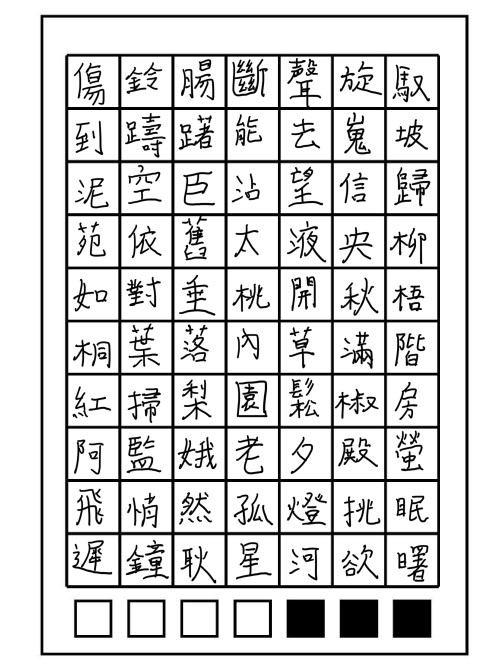 傷鈴腸斷聲旋馭
到躊躇能去嵬坡
泥空巨沾望信歸
苑依舊太液央柳
如對垂桃開秋梧
桐葉落內草滿階
紅掃梨園鬆椒房
阿監娥老夕殿螢
飛悄然孤燈挑眠
遲鐘耿星河欲曙